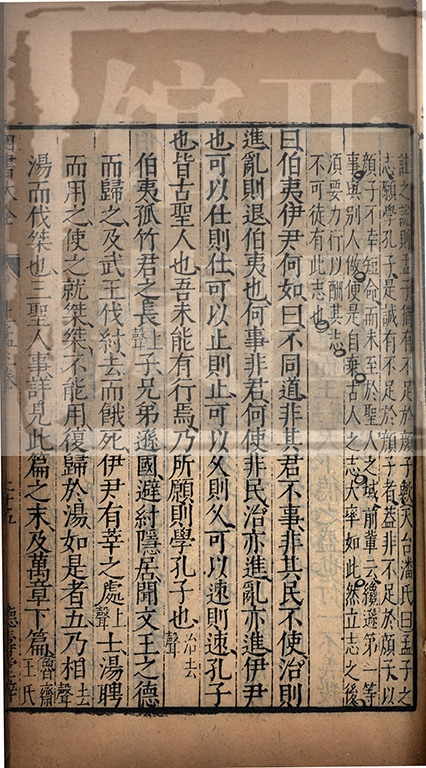 註之說則孟子猶有不足於顏子歟天台潘氏曰孟子之
志願學孔子是誠有不足於顏子者蓋非不足於顏子以
顏子不幸短命而未至於聖人之域前輩云纔遜第一等
事與別人做便是自棄古人之志大率如此然立志之後
須要力行以酬其志
不可徒有此志也
曰伯夷伊尹何如曰不同道非其君不事非其民不使治則
進亂則退伯夷也何事非君何使非民治亦進亂亦進伊尹
也可以仕則仕可以止則止可以久則久可以速則速孔子
也皆古聖人也吾未能有行焉乃所願則學孔子也治去聲
伯夷孤竹君之長上聲子兄弟遜國避紂隱居聞文王之德
而歸之及武王伐紂去而餓死伊尹有莘之處上聲士湯聘
而用之使之就桀桀不能用復歸於湯如是者五乃相去聲
湯而伐桀也三聖人事詳見此篇之末及萬章下篇魯齋王氏
四書大全
二十五
德壽堂梓